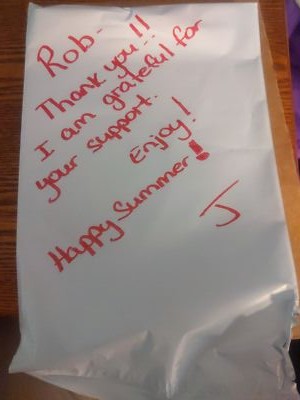 Rob-
Thank you!!
I am grateful for
your support.
Enjoy!
Happy Summer!
J